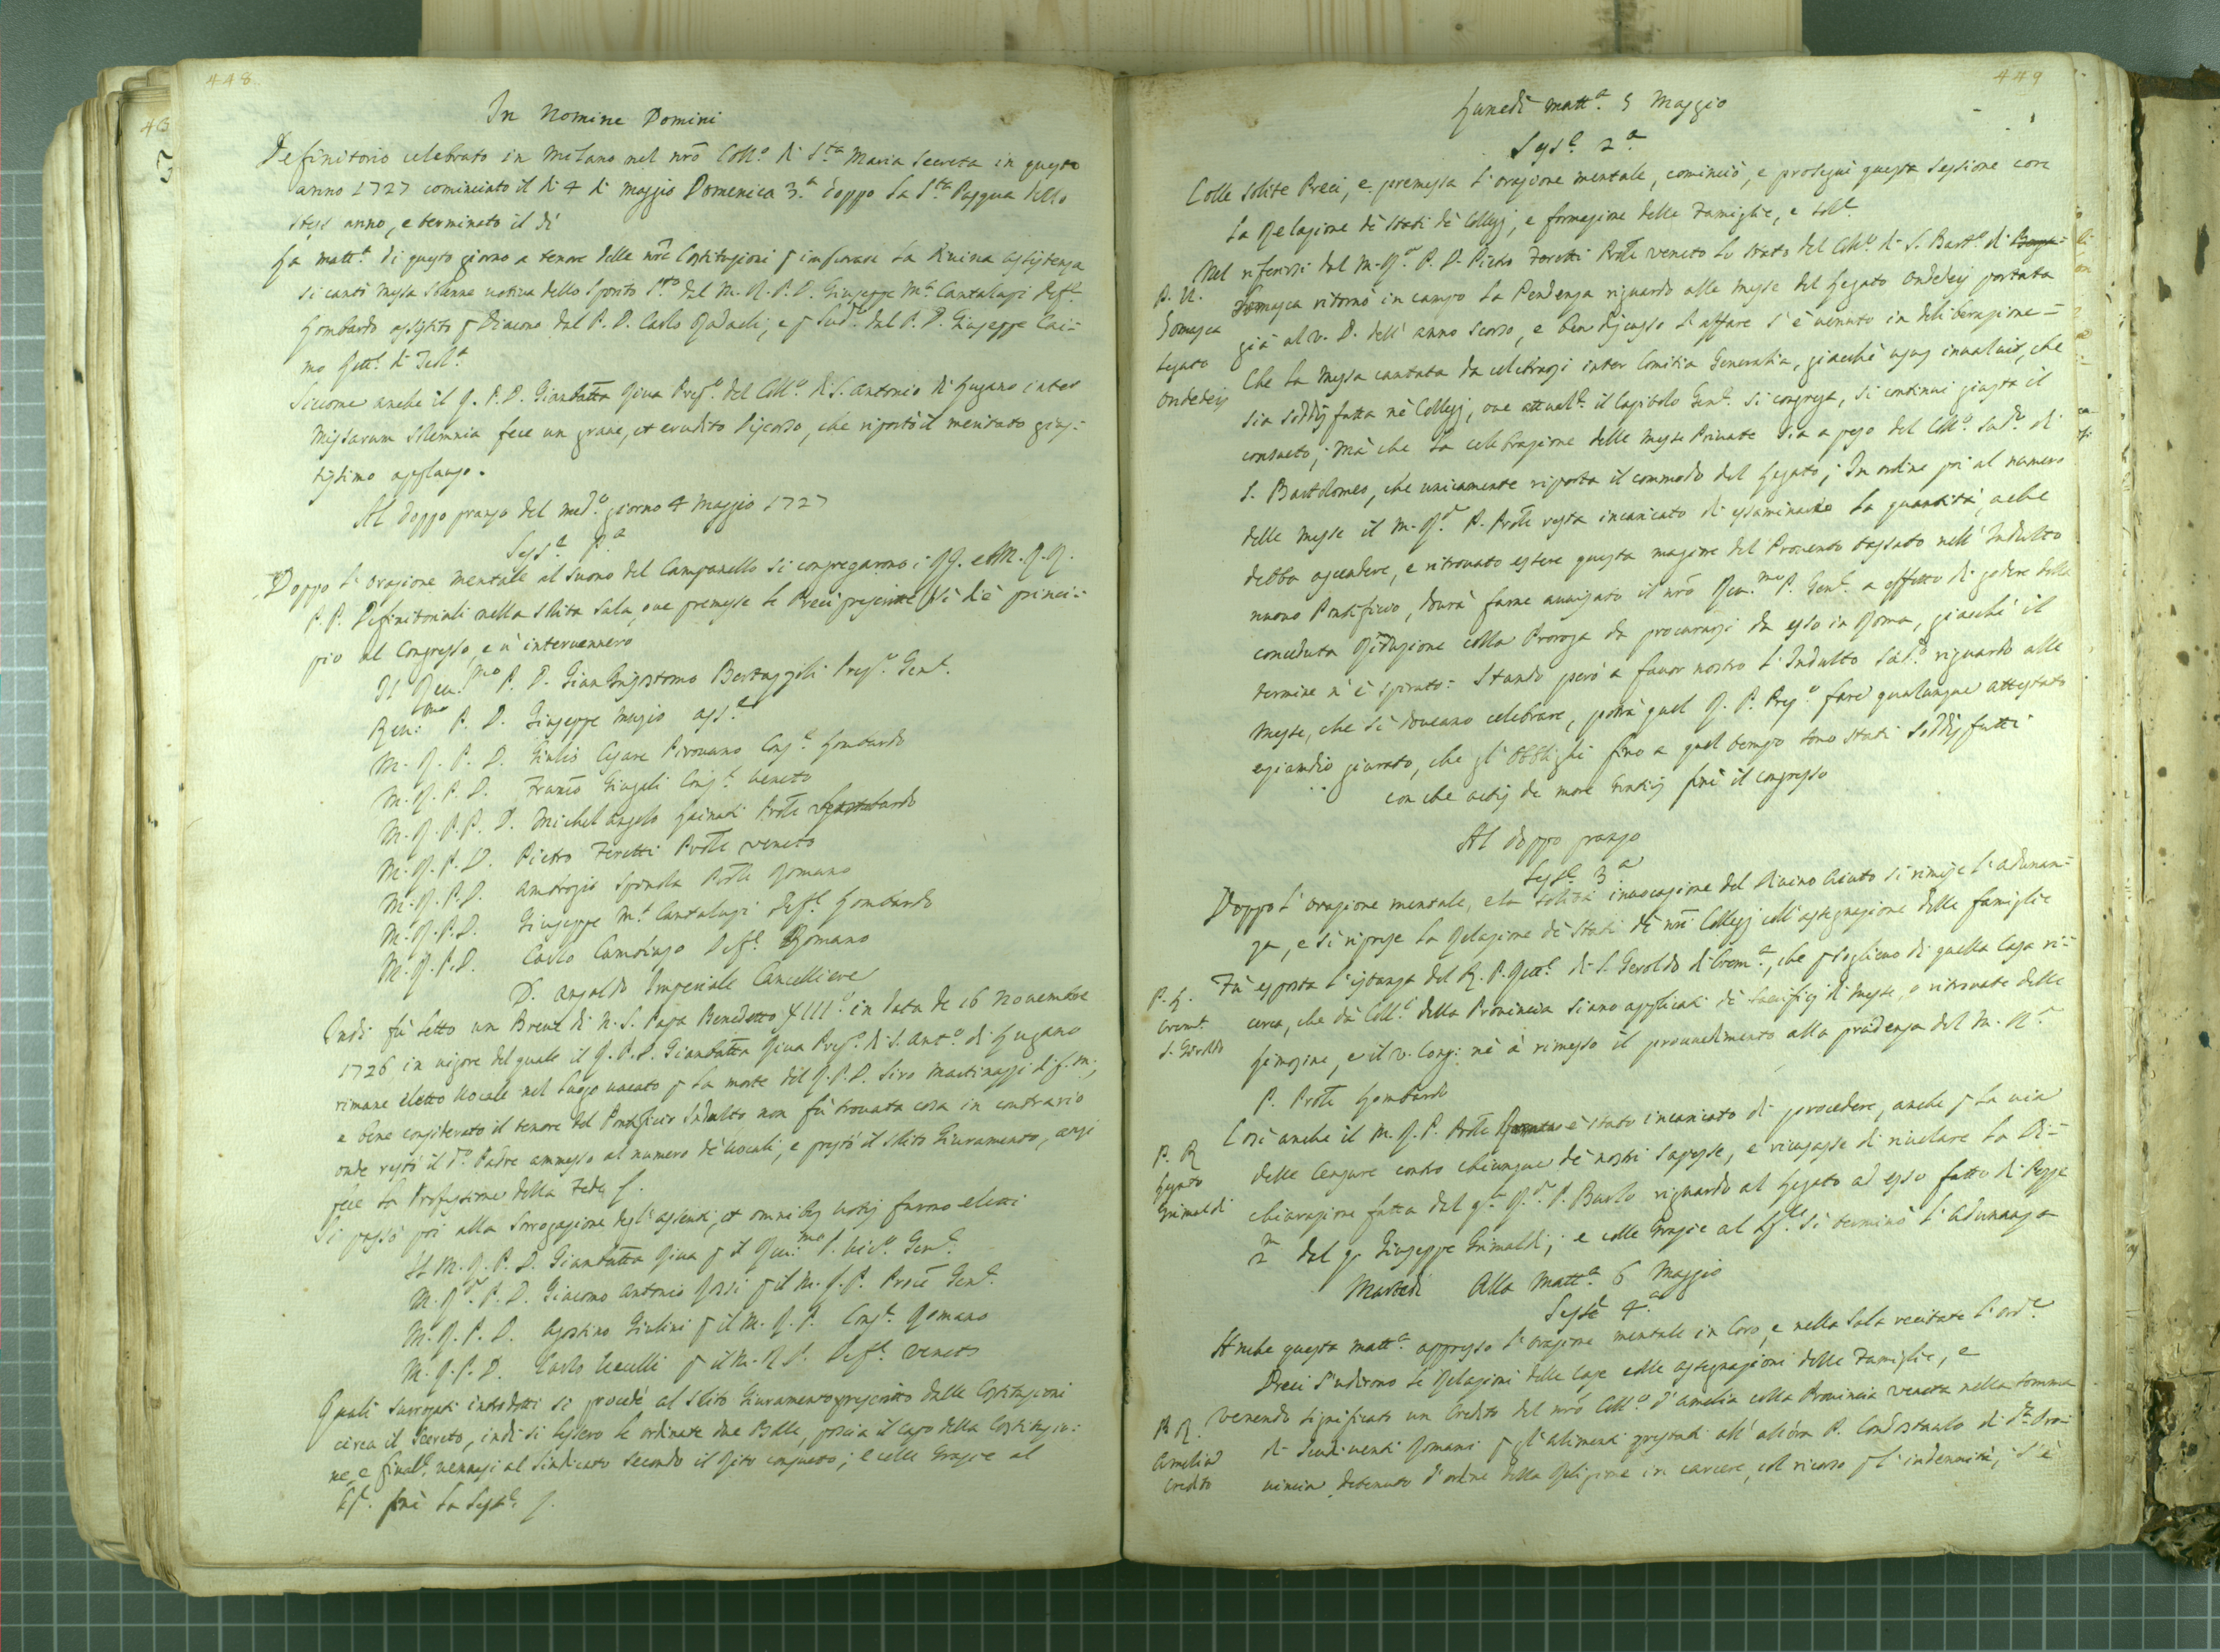 448
In Nomine Domini
Definitorio celebrato in Milano nel nrō Coll.o di S.ta Maria Secreta in questo
anno 1727 cominciato il di 4 di Maggio Domenica 3.a doppo la S.ta Pasqua dello
stess anno, e terminato il dì
La matt.a di questo giorno a tenore delle nrē Costituzioni p implorare la Divina assistenza
si cantò Messa solenne votiva dello Spirito S.to dal M. R. P. D. Giuseppe M.a Cantaluppi Deff.e
Lombardo assistito p Diacono dal P. D. Carlo, e p Sud.o dal P. D. Giuseppe Cai-
mo Rett.e di
Siccome anche il R. P. D. Giambatta Riva Prep.o del Coll.o di S. Antonio di Lugano inter
Missarum solemnia fece un grave, et erudito discorso, che riportò il meritato gius-
tissimo applauso.
Al doppo pranzo del med.o giorno 4 Maggio 1727
Sess.e P.a
Doppo l'orazione mentale al suono del Campanello si congregarono i RR. e M. R. R.
P. P. Definitoriali nella solita sala, ove premesse le Preci prescritte si diè princi-
pio al Congresso, e v'intervennero
Il Rev.mo P. D. Gian Grisostomo Bertazzoli Prep.o Gen.e
Rev.mo P. D. Giuseppe Muzio Ass.e
M. R. P. D. Giulio Cesare Pirovano Cons.e Lombardo
M. R. P. D. Franco Giugali Cons.e Veneto
M. R. P. P. D. Michel Angelo Prōle Lombardo
M. R. P. D. Pietro Feretti Prōle Veneto
M. R. P. D. Ambrogio Spinola Prōle Romano
M. R. P. D. Giuseppe M.a Cantaluppi Deff.e Lombardo
M. R. P. D. Carlo Deff.e Romano
D. Ansaldo Imperiale Cancelliere
Indi fù letto un Breve di N. S. Papa Benedetto XIII.o in data de 16 Novembre
1726 in vigore del quale il R. P. D. Giambatta Riva Prep.o di S. Ant.o di Lugano
rimane eletto Vocale nel luogo vacato p la morte del R. P. D. Siro Martinazzi di f. m.;
e bene considerato il tenore del Pontificio Indulto non fù trovata cosa in contrario
onde restò il d.o Padre ammesso al numero de Vocali, e prestò il solito Giuramento, anzi
fece la Professione della Fede
Si passò poi alla Surrogazione degl'assenti, et omnibus votis furono eletti
Il M. R. P. D. Giambatta Riva p il Rev.mo P. Vic.o Gen.e
M. R. P. D. Giacomo Antonio Rossi p il M. R. P. Procē Gen.e
M. R. P. D. Agostino Giulini p il M. R. P. Cons.e Romano
M. R. P. D. Carlo p il M. R. P. Deff.e Veneto
Quali surrogati introdotti si procedè al solito Giuramento prescritto dalle Costituzioni
circa il secreto, indi si lessero le ordinate due Bolle, poscia il Capo della Costituzio-
ne, e final.e vennesi al Sindicato secondo il Rito consueto; e colle Grazie al
Sig.e finì la Sess.e
449
Lunedì matt.a 5 Maggio
Sess.e 2.a
Colle solite Preci, e premessa l'orazione mentale, cominciò, e proseguì questa Sessione con
la Relazione dè Stati dè Collegj, e formazione delle Famiglie, e
Nel riferirsi dal M. R. P. D. Pietro Feretti Prōle Veneto lo Stato del Coll.o di S. Bart.o di
P. V.
Somasca
Legato
Ondedei
Somasca ritornò in campo la Pendenza riguardo alle Messe del Legato Ondedei portata
già al V. D. dell'anno scorso, e ben discusso l'affare s'è venuto in deliberazione =
Che la Messa cantata da celebrarsi inter Comitia Generalia, giacchè usus invaluit, che
sia soddisfatta nè Collegj, ove attual.e il Capitolo Gen.e si congrega, si continui giusta il
consueto; Mà che la celebrazione delle Messe Private sia a peso del Coll.o sud.o di
S. Bartolomeo, che unicamente riporta il commodo del Legato; In ordine poi al numero
delle Messe il M. R. P. Prōle resta incaricato di esaminarne la quantità, a che
debba ascendere, e ritrovato essere questa maggiore del Provento tassato nell'Indulto
nuovo Pontificio, dovrà farne avvisato il nrō Rev.mo P. Gen.e a effetto di godere della
conceduta Riduzione colla Proroga da procurarsi da esso in Roma, giacchè il
termine n'è spirato: Stando però a favor nostro l'Indulto sud.o riguardo alle
Messe, che si doveano celebrare, potrà quel R. P. Prep.o fare qualunque attestato
eziandio giurato, che gl'Obblighi fino a quel tempo sono stati soddisfatti
con che actis de more Gratiis finì il congresso
Al doppo pranzo
Sess.e 3.a
Doppo l'orazione mentale, e la solita invocazione del Divino aiuto si rimise l'adunan-
za, e si riprese la Relazione dè Stati dè nrī Collegj coll'assegnazione delle famiglie
P. L.
Crem.a
S. Geroldo
Fù esposta l'istanza del R. P. Rett.e di S. Geroldo di Crem.a, che p sollievo di quella Casa ri-
cerca, che dà Coll.i della Provincia siano applicati dè Sacrificj di Messe, o ritrovate delle
Limosine, e il V. Cong: nè à rimesso il provvedimento alla prudenza del M. R.
P. Prōle Lombardo
P. R
Legato
Grimaldi
Così anche il M. R. P. Prōle Romano è stato incaricato di procedere, anche p la via
delle Censure contro chiunque dè nostri sapesse, e ricusasse di rivelare la Di-
chiarazione fatta dal q. R. P. Burlo riguardo al Legato ad esso fatto di Pezze
2 m dal q. Giuseppe Grimaldi; e colle Grazie al Sig.e si terminò l'adunanza
Martedì Alla Matt.a 6 Maggio
Sess.e 4.a
Anche questa matt.a appresso l'orazione mentale in Coro, e nella Sala recitate l'ord.e
Preci s'udirono le Relazioni delle Case colle assegnazioni delle Famiglie, e
P. R.
Amelia
Credito
Venendo significato un Credito del nrō Coll.o d'Amelia colla Provincia Veneta nella somma
di Romani p gl'alimenti prestati all'allora P. di d.a Pro-
vincia detenuto d'ordine della Religione in carcere, col ricorso p l'indennità; S'è